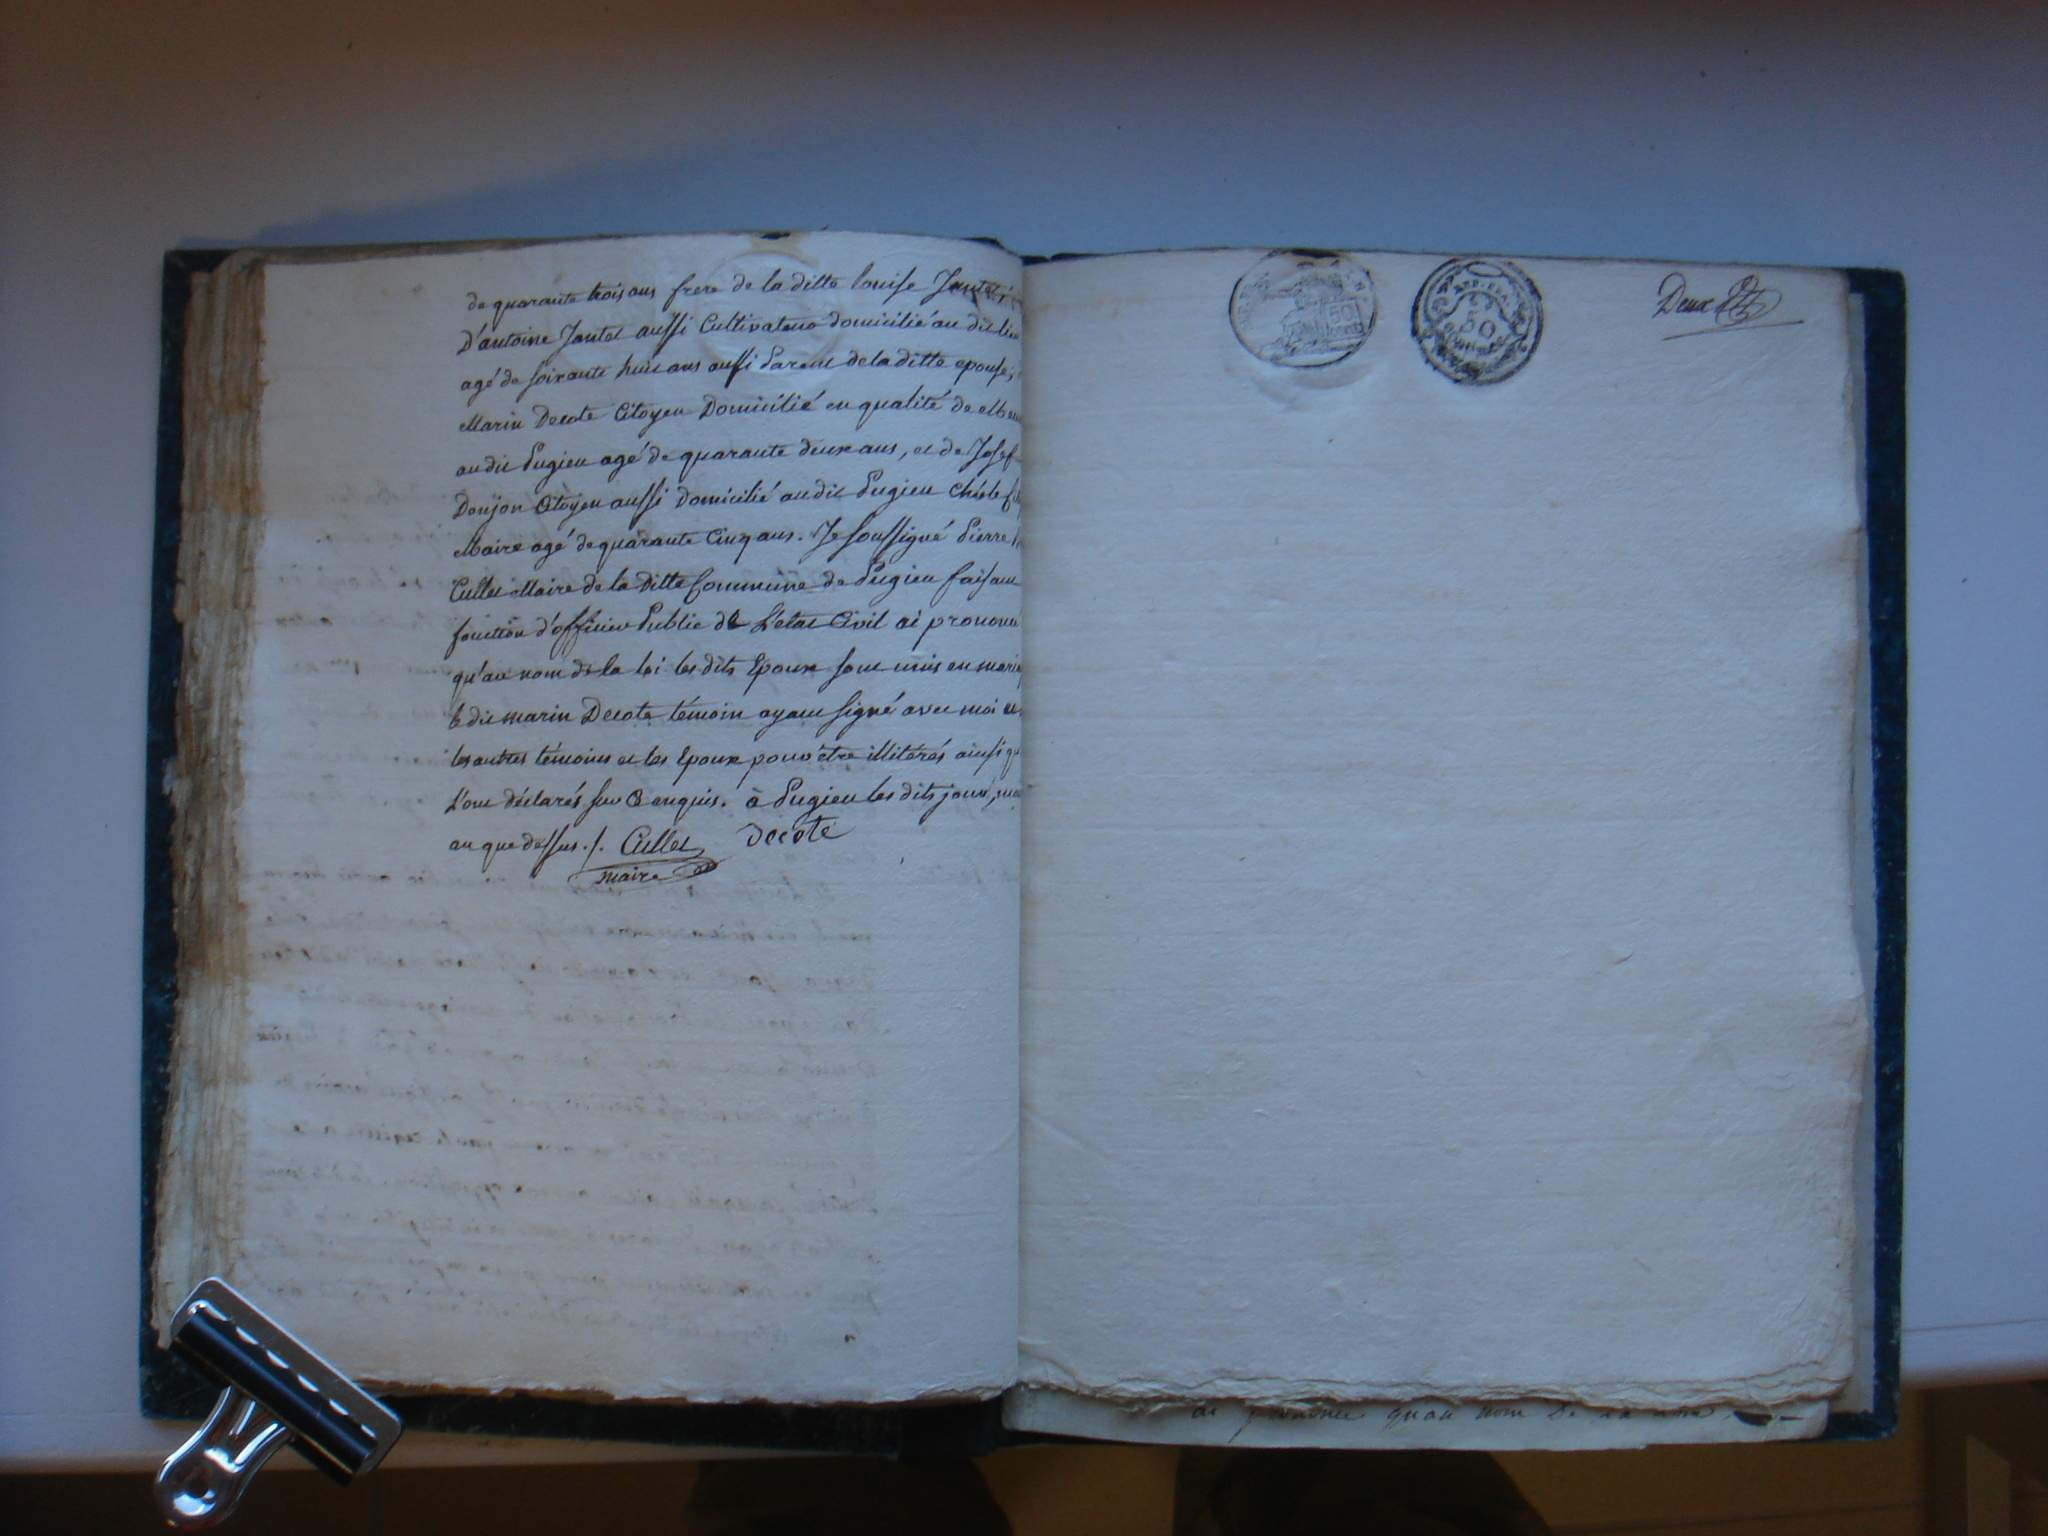 de quarante trois ans frere de la ditte louise Jantet;
D'antoine Jantet aussi Cultivateur domicilié au dit lieu
agé de soixante huit ans aussi Parent de la ditte epouse;
Marin Decote Citoyen Domicilié en qualité de
au dit Pugieu agé de quarante deux ans, et de Josef
Donjon Citoyen aussi domicilié au dit Pugieu
Maire agé de quarante Cinq ans. Je soussigné Pierre
Cullet Maire de la ditte Commune de Pugieu faisant
fonction d'officier Public de L'etat Civil ai prononcé
qu'au nom de la loi les dits Epoux sont unis en
le dit marin Decote témoin ayant signé avec moi et
les autres témoins et les Epoux pour être illitérés ainsi
L'ont déclarés sur Ce enquis. à Pugieu les dits jour,
an que dessus ./. Cullet Decote
maire
Deux
50
50
ai prononcé qu'au nom de la